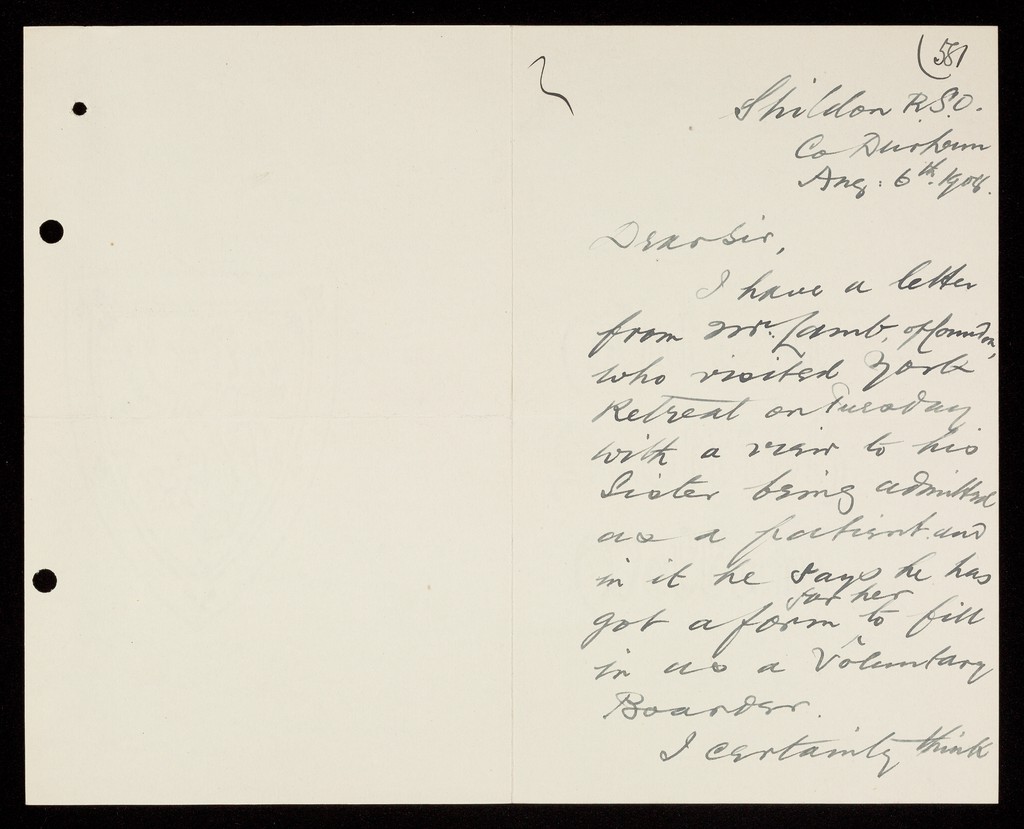 (581
Shildon R.S.O.
Co Durham
Aug: 6th. 1908.
Dear Sir,
I have a letter
from Mr. Lamb, of Coundon,
who visited York
Retreat on Tuesday
with a view to his
Sister being admitted
as a patient and
in it he says he has
for her
got a form to fill
in as a Voluntary
Boarder.
I certainly think